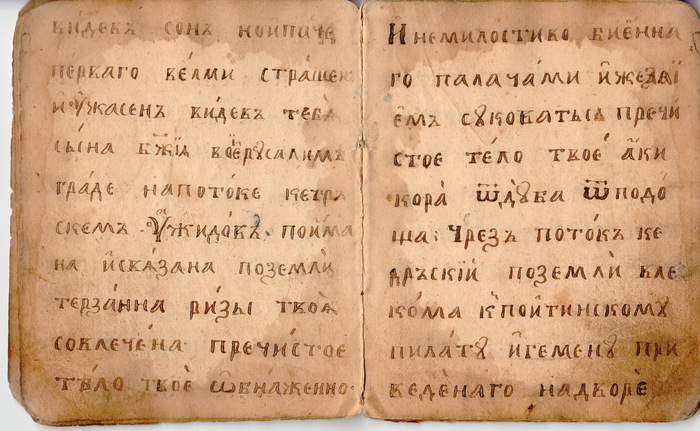 видевъ сонъ нонпаче
перваго ве́лми страшен
и҆ ᲂу҆жасенъ ви́девъ тебѧ
сы́на бж҃їѧ воїе҆русалимъ
граде напото́ке кедръ
скемъ ꙋ҆жидо́въ пойма
на и҆свѧ́зана поземлѝ
терза́нна ри́зы твоѧ
совлече́на пречи́стое
тѣ́ло твоѐ ѡ҆бнаженно.
И немило́стико биѐнна
го палача́ми и҆желѣ́зї
е҆мъ сꙋкова́тысѧ пречи
стое те́ло твое́ а҆́ки
кора̀ ѿдꙋ́ба ѿподо́
ша: Чрезъ пото́къ ке
дръскїй поземлѝ вле
ко́ма къпо́йтинскомꙋ
пила́тꙋ и҆́гемѡнꙋ при
веде́наго надворѐ